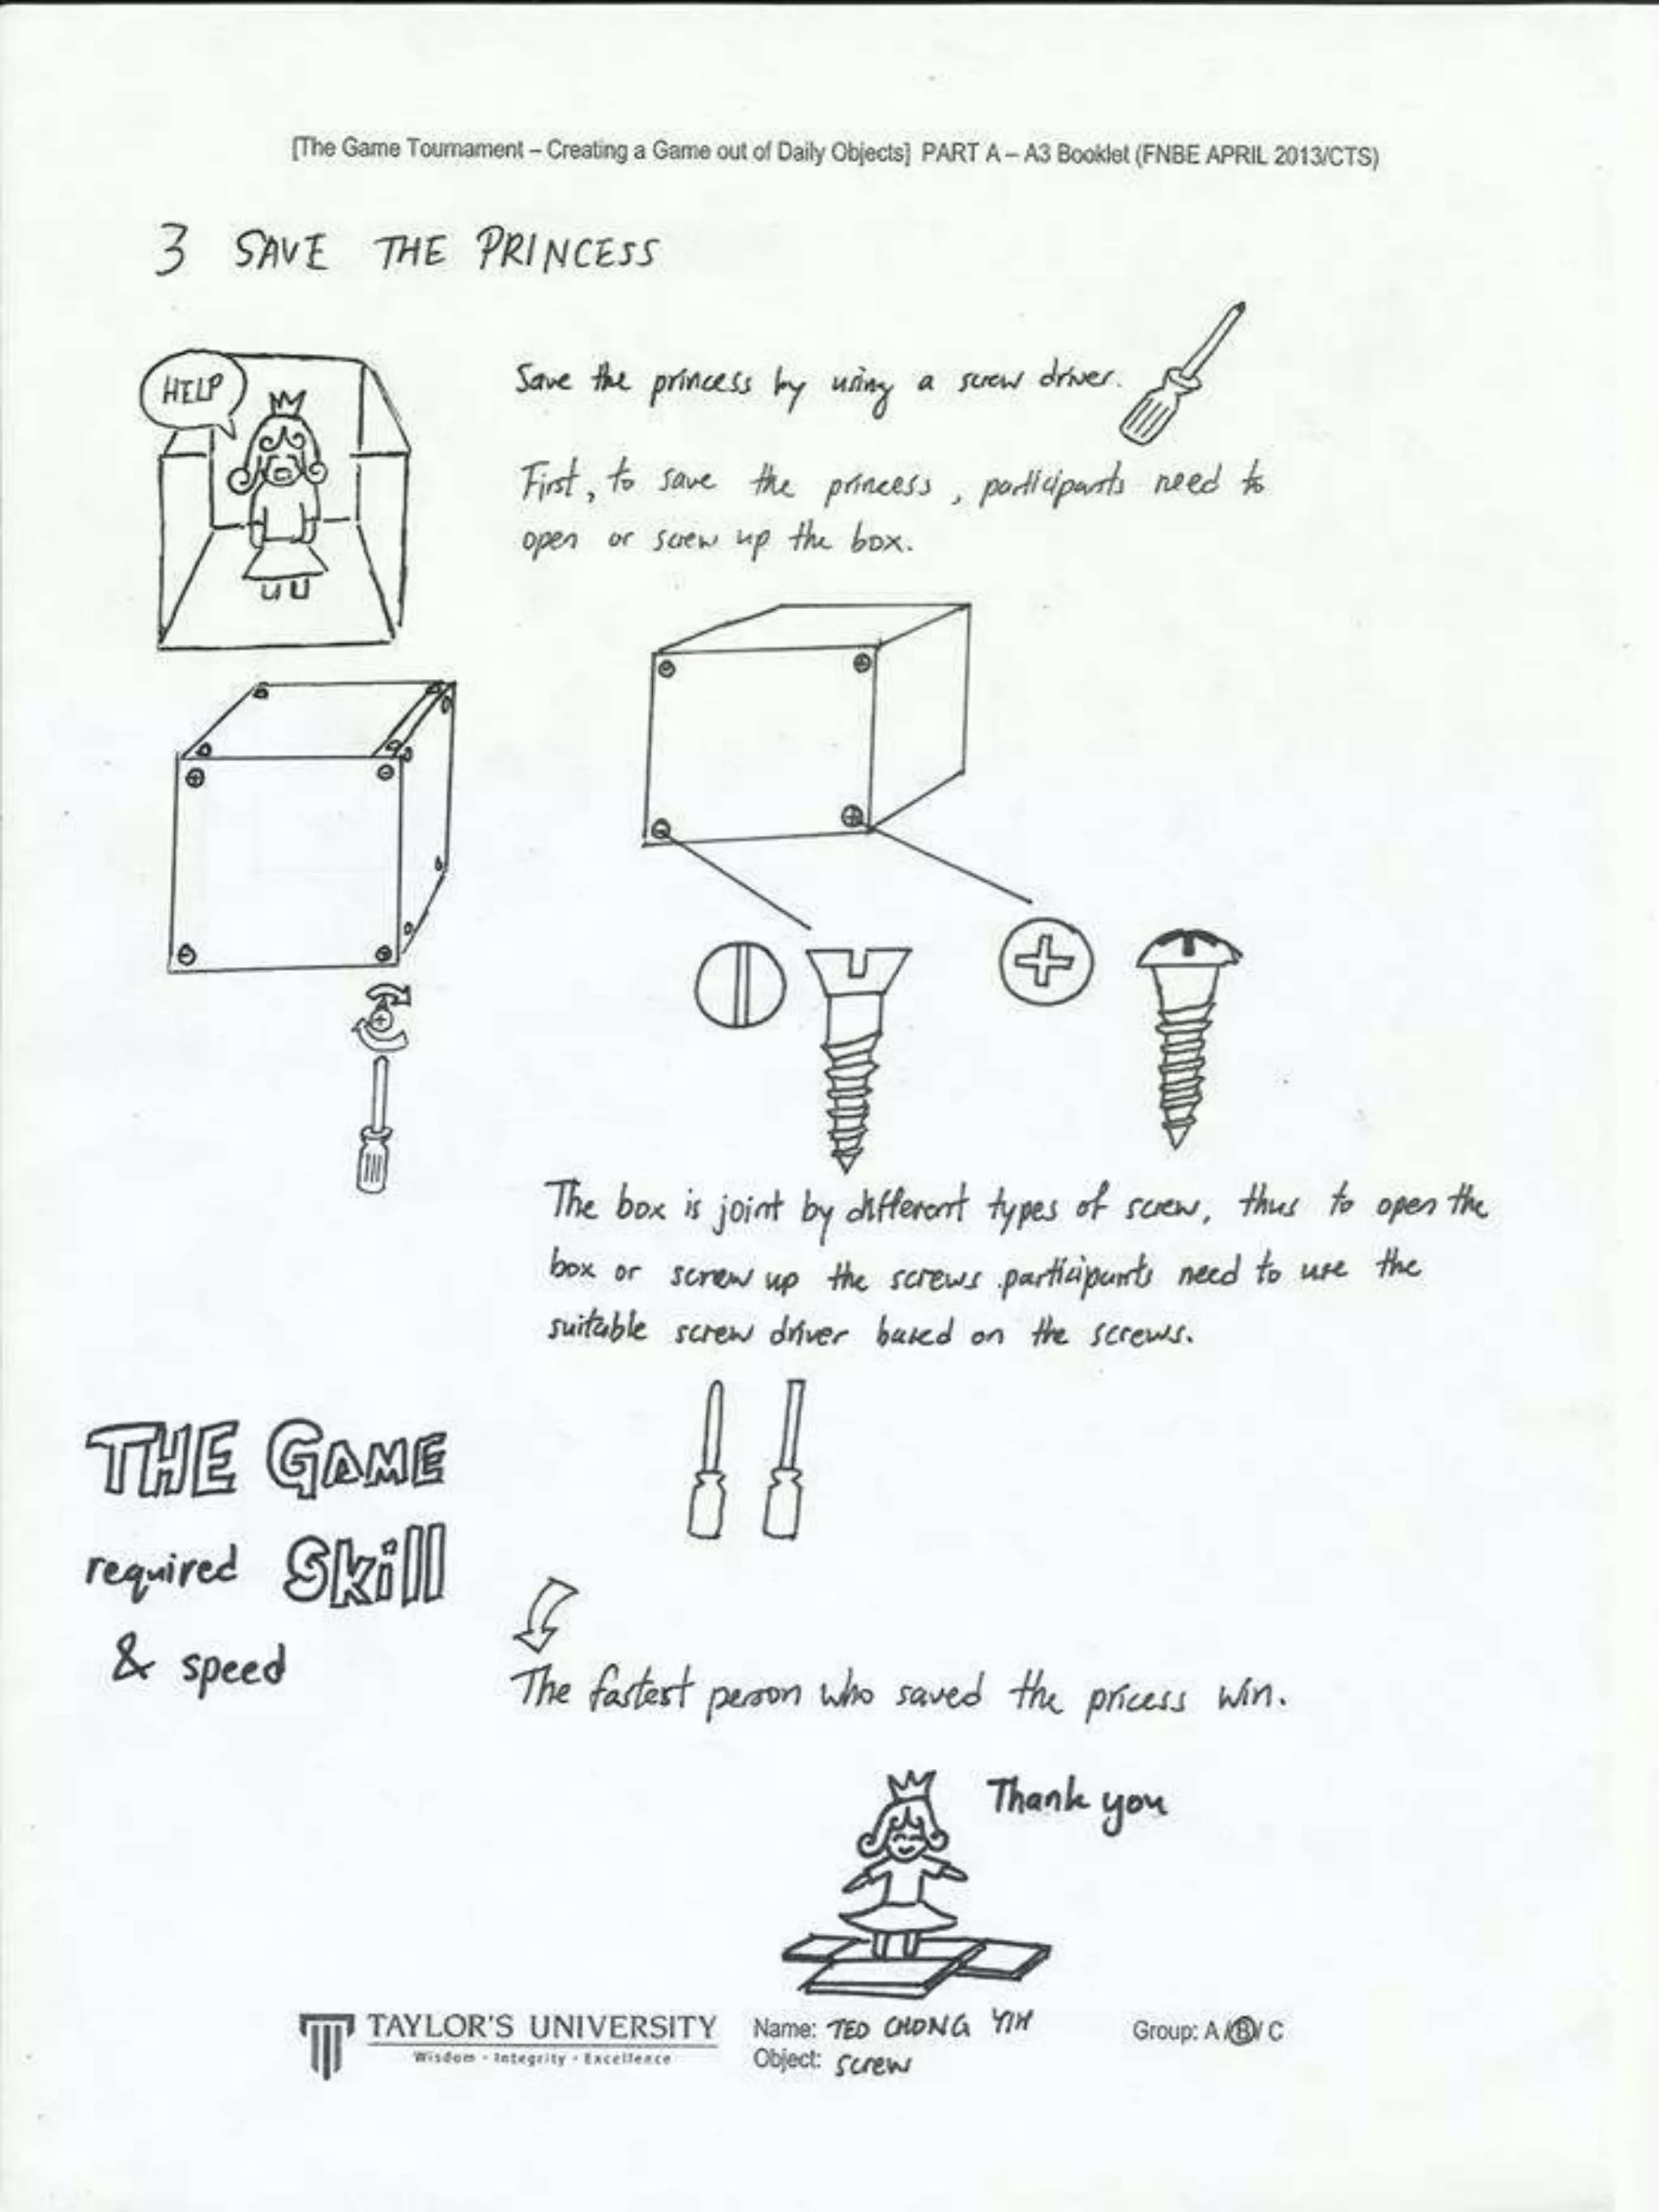 [The Game Tournament – Creating a Game out of Daily Objects] PART A – A3 Booklet (FNBE APRIL 2013/CTS)
3 SAVE THE PRINCESS
HELP
Save the princess by using a screw driver.
First, to save the princess, participants need to
open or screw up the box.
The box is joint by different types of screw, thus to open the
box or screw up the screws participants need to use the
suitable screw driver based on the screws.
THE GAME
required Skill
& speed
The fastest person who saved the pricess win.
Thank you
TAYLOR'S UNIVERSITY
Wisdom · Integrity · Excellence
Name: TEO CHONG YIH
Object: screw
Group: A / B / C